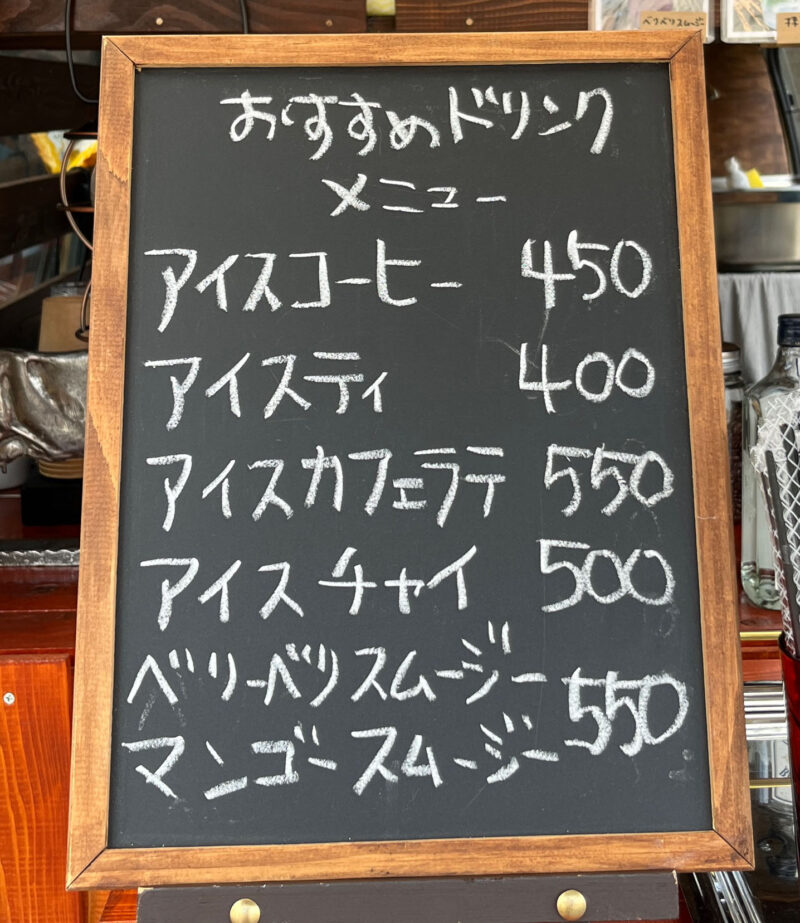 ベリベリスムージー
おすすめドリンク
メニュー
アイスコーヒー 450
アイスティ 400
アイスカフェラテ 550
アイスチャイ 500
ベリーベリスムージー
550
マンゴースムージー